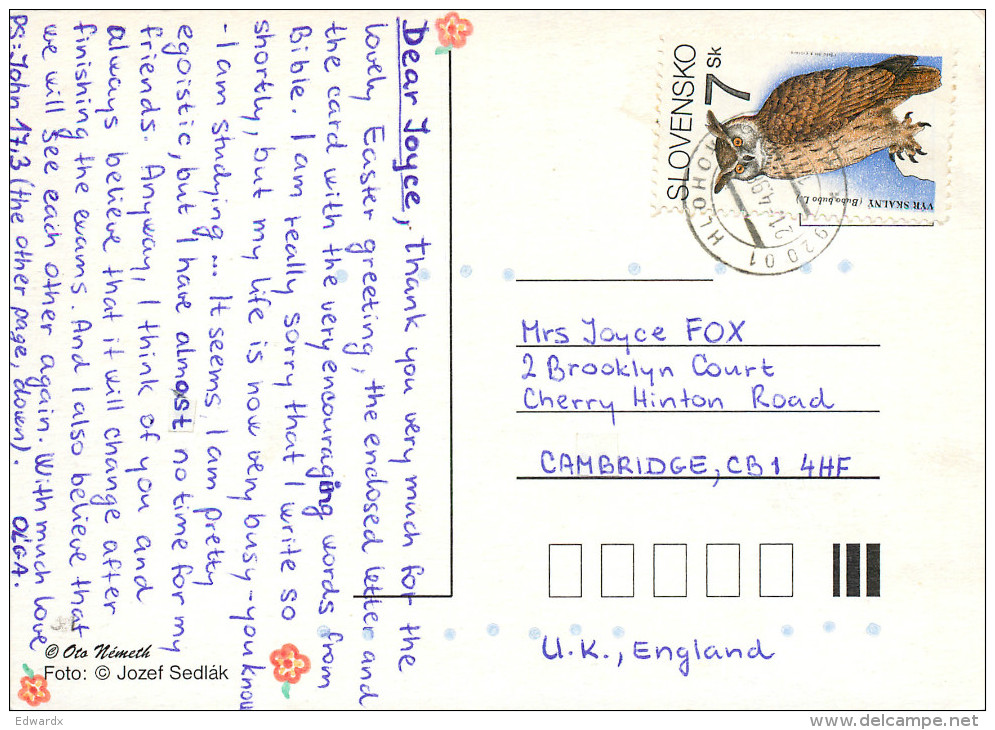 Dear Joyce, thank you very much for the
lovely Easter greeting, the enclosed letter and
the card with the very encouraging words from
Bible. I am really sorry that I write so
shortly, but my life is now very busy - you know
- I am studying... It seems, I am pretty
egoistic, but I have almost no time for my
friends. Anyway, I think of you and
always believe that it will change after
finishing the exams. And I also believe that
we will see each other again. With much love
PS: John 17,3 (the other page, down). OĽGA.
© Oto Németh
Foto: © Jozef Sedlák
SLOVENSKO
7 Sk
VÝR SKALNÝ (Bubo bubo L.)
HLOHOVEC
920 01
Mrs Joyce FOX
2 Brooklyn Court
Cherry Hinton Road
CAMBRIDGE, CB1 4HF
U.K., England
Edwardx
www.delcampe.net